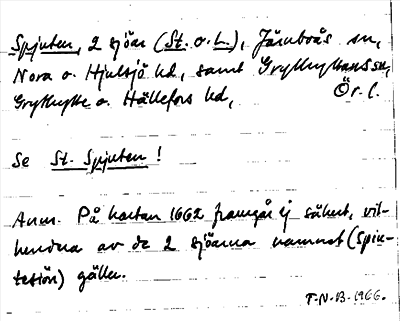 Spjuten, 2 sjöar (St. o. L.), Järnboås sn,
Nora o. Hjulsjö hd, samt Grythyttans sn,
Grythytte o. Hällefors hd, Ör. l.
Se St. Spjuten!
Anm. På kartan 1662 framgår ej säkert, vil-
kendera av de 2 sjöarna namnet (Spiu-
tesiön) gäller.
T-N-B-1966.